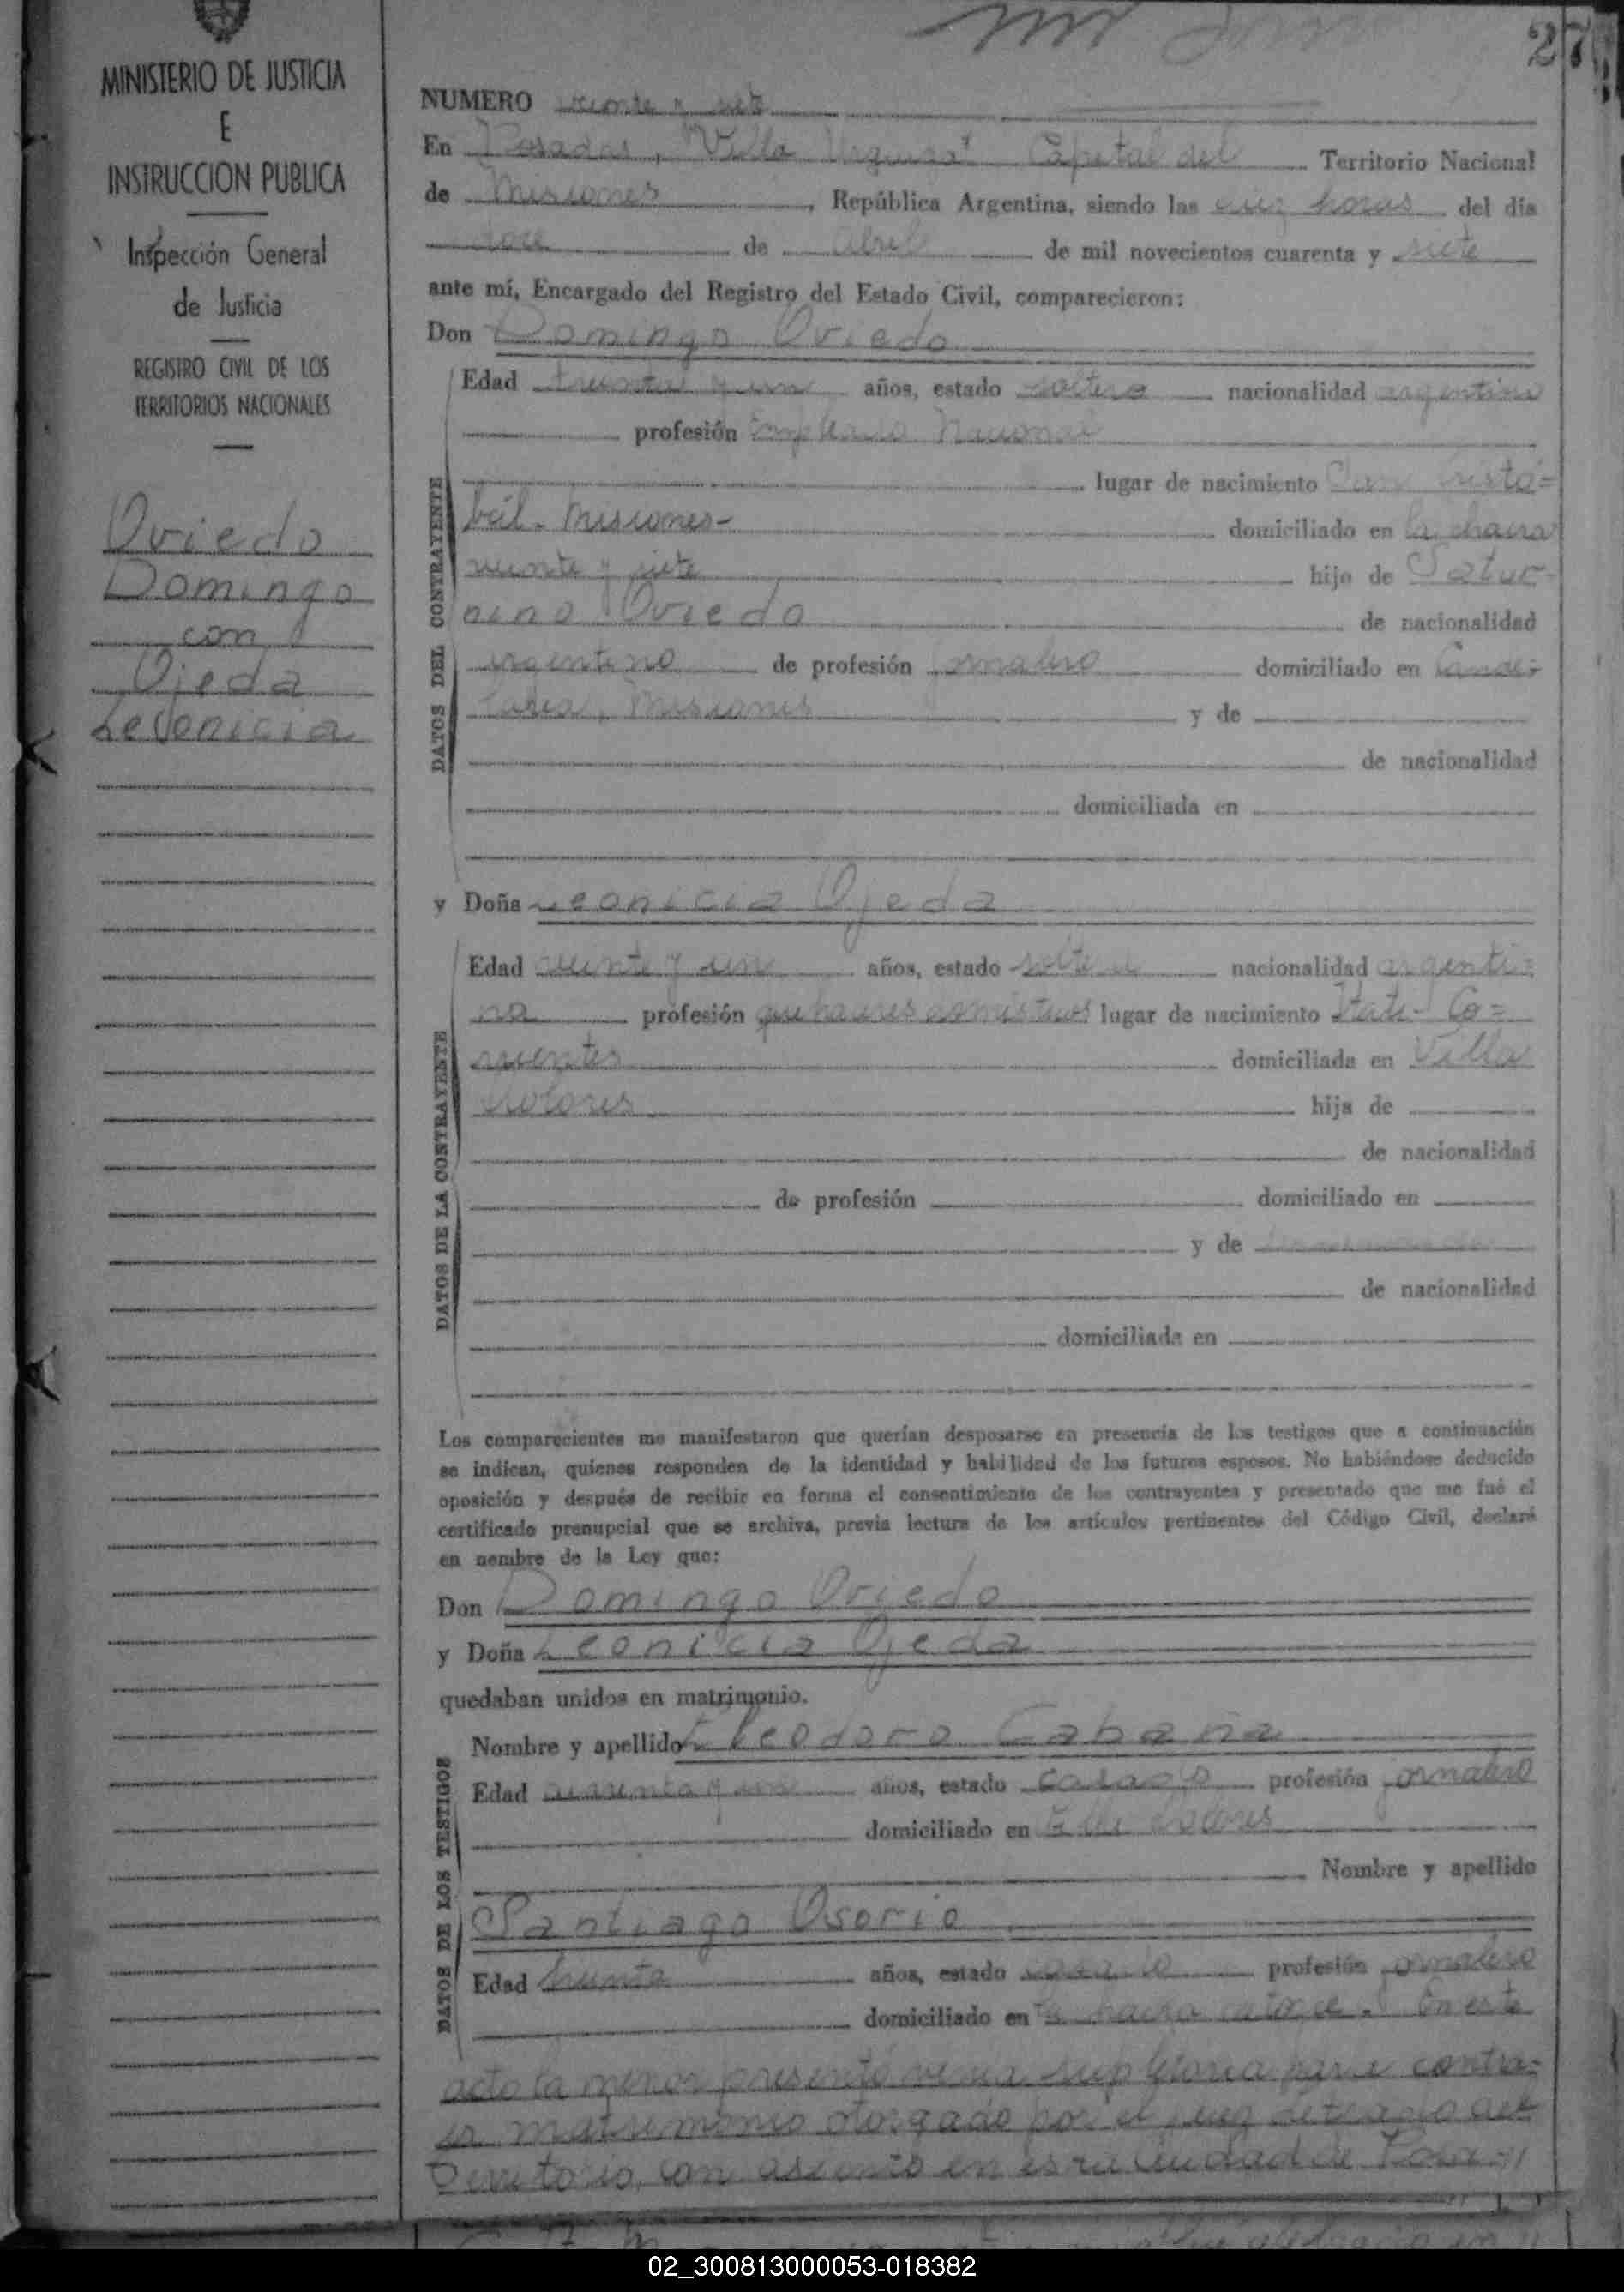 MINISTERIO DE JUSTICIA
E
INSTRUCCION PUBLICA
Inspección General
de Justicia
REGISTRO CIVIL DE LOS
TERRITORIOS NACIONALES
Oviedo
Domingo
con
Ojeda
Leonicia
27
NUMERO veinte y siete
En Posadas, Villa Urquiza Capital del Territorio Nacional
de Misiones, República Argentina, siendo las diez horas del día
doce de abril de mil novecientos cuarenta y siete
ante mí, Encargado del Registro del Estado Civil, comparecieron:
Don Domingo Oviedo
DATOS DEL CONTRAYENTE
Edad treinta y un años, estado soltero nacionalidad argentina
profesión Empleado Nacional
lugar de nacimiento San Cristó=
bál - Misiones - domiciliado en la chacra
veinte y siete hijo de Satur-
nino Oviedo de nacionalidad
argentino de profesión jornalero domiciliado en Cande-
laria, Misiones y de
de nacionalidad
domiciliada en
y Doña Leonicia Ojeda
DATOS DE LA CONTRAYENTE
Edad veinte y un años, estado soltera nacionalidad argenti=
na profesión quehaceres domésticos lugar de nacimiento Itati - Co=
rrientes domiciliada en Villa
Dolores hija de
de nacionalidad
de profesión domiciliado en
y de
de nacionalidad
domiciliada en
Los comparecientes me manifestaron que querían desposarse en presencia de los testigos que a continuación
se indican, quienes responden de la identidad y habilidad de los futuros esposos. No habiéndose deducido
oposición y después de recibir en forma el consentimiento de los contrayentes y presentado que me fué el
certificado prenupcial que se archiva, previa lectura de los artículos pertinentes del Código Civil, declaré
en nombre de la Ley que:
Don Domingo Oviedo
y Doña Leonicia Ojeda
quedaban unidos en matrimonio.
DATOS DE LOS TESTIGOS
Nombre y apellido Eleodoro Cabaña
Edad y años, estado casado profesión jornalero
domiciliado en Villa Dolores
Nombre y apellido
Santiago Osorio
Edad treinta años, estado casado profesión jornalero
domiciliado en la chacra catorce. En este
acto la menor presentó venia supletoria para contra=
er matrimonio otorgado por el juez letrado del
Territorio, con asiento en esta Ciudad de Posa=//
02_300813000053-018382